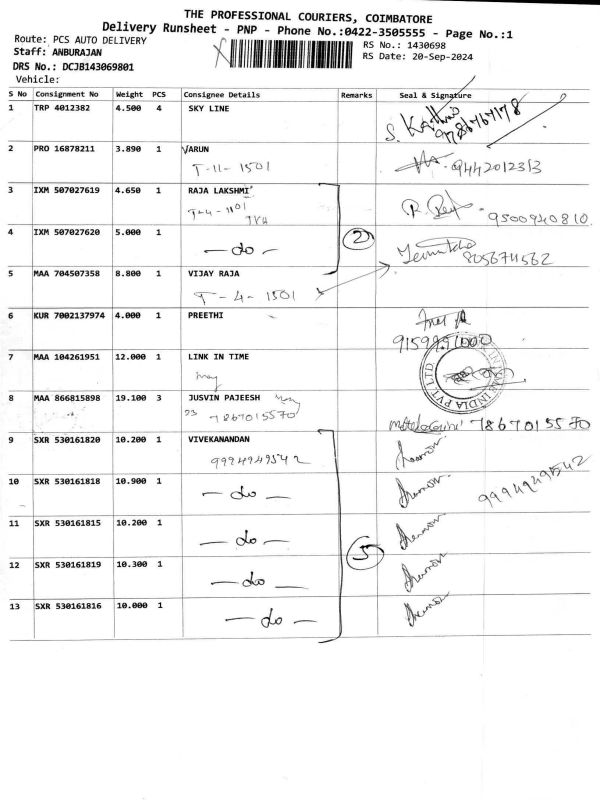 THE PROFESSIONAL COURIERS, COIMBATORE
Delivery Runsheet - PNP - Phone No.:0422-3505555 - Page No.:1
Route: PCS AUTO DELIVERY
RS No.: 1430698
Staff: ANBURAJAN
RS Date: 20-Sep-2024
DRS No.: DCJB143069801
Vehicle:
S No Consignment No Weight PCS Consignee Details Remarks Seal & Signature
1 TRP 4012382 4.500 4 SKY LINE
2 PRO 16878211 3.890 1 VARUN
T-11-1501 9442012313
3 IXM 507027619 4.650 1 RAJA LAKSHMI
T-4-1101 9500940810
4 IXM 507027620 5.000 1
- do - 2
5 MAA 704507358 8.800 1 VIJAY RAJA
T-4-1501
6 KUR 7002137974 4.000 1 PREETHI
7 MAA 104261951 12.000 1 LINK IN TIME
INDIA PVT. LTD
8 MAA 866815898 19.100 3 JUSVIN PAJEESH
7867015570 7867015570
9 SXR 530161820 10.200 1 VIVEKANANDAN
9994949542
10 SXR 530161818 10.900 1
- do - 9994949542
11 SXR 530161815 10.200 1
- do - 5
12 SXR 530161819 10.300 1
- do -
13 SXR 530161816 10.000 1
- do -